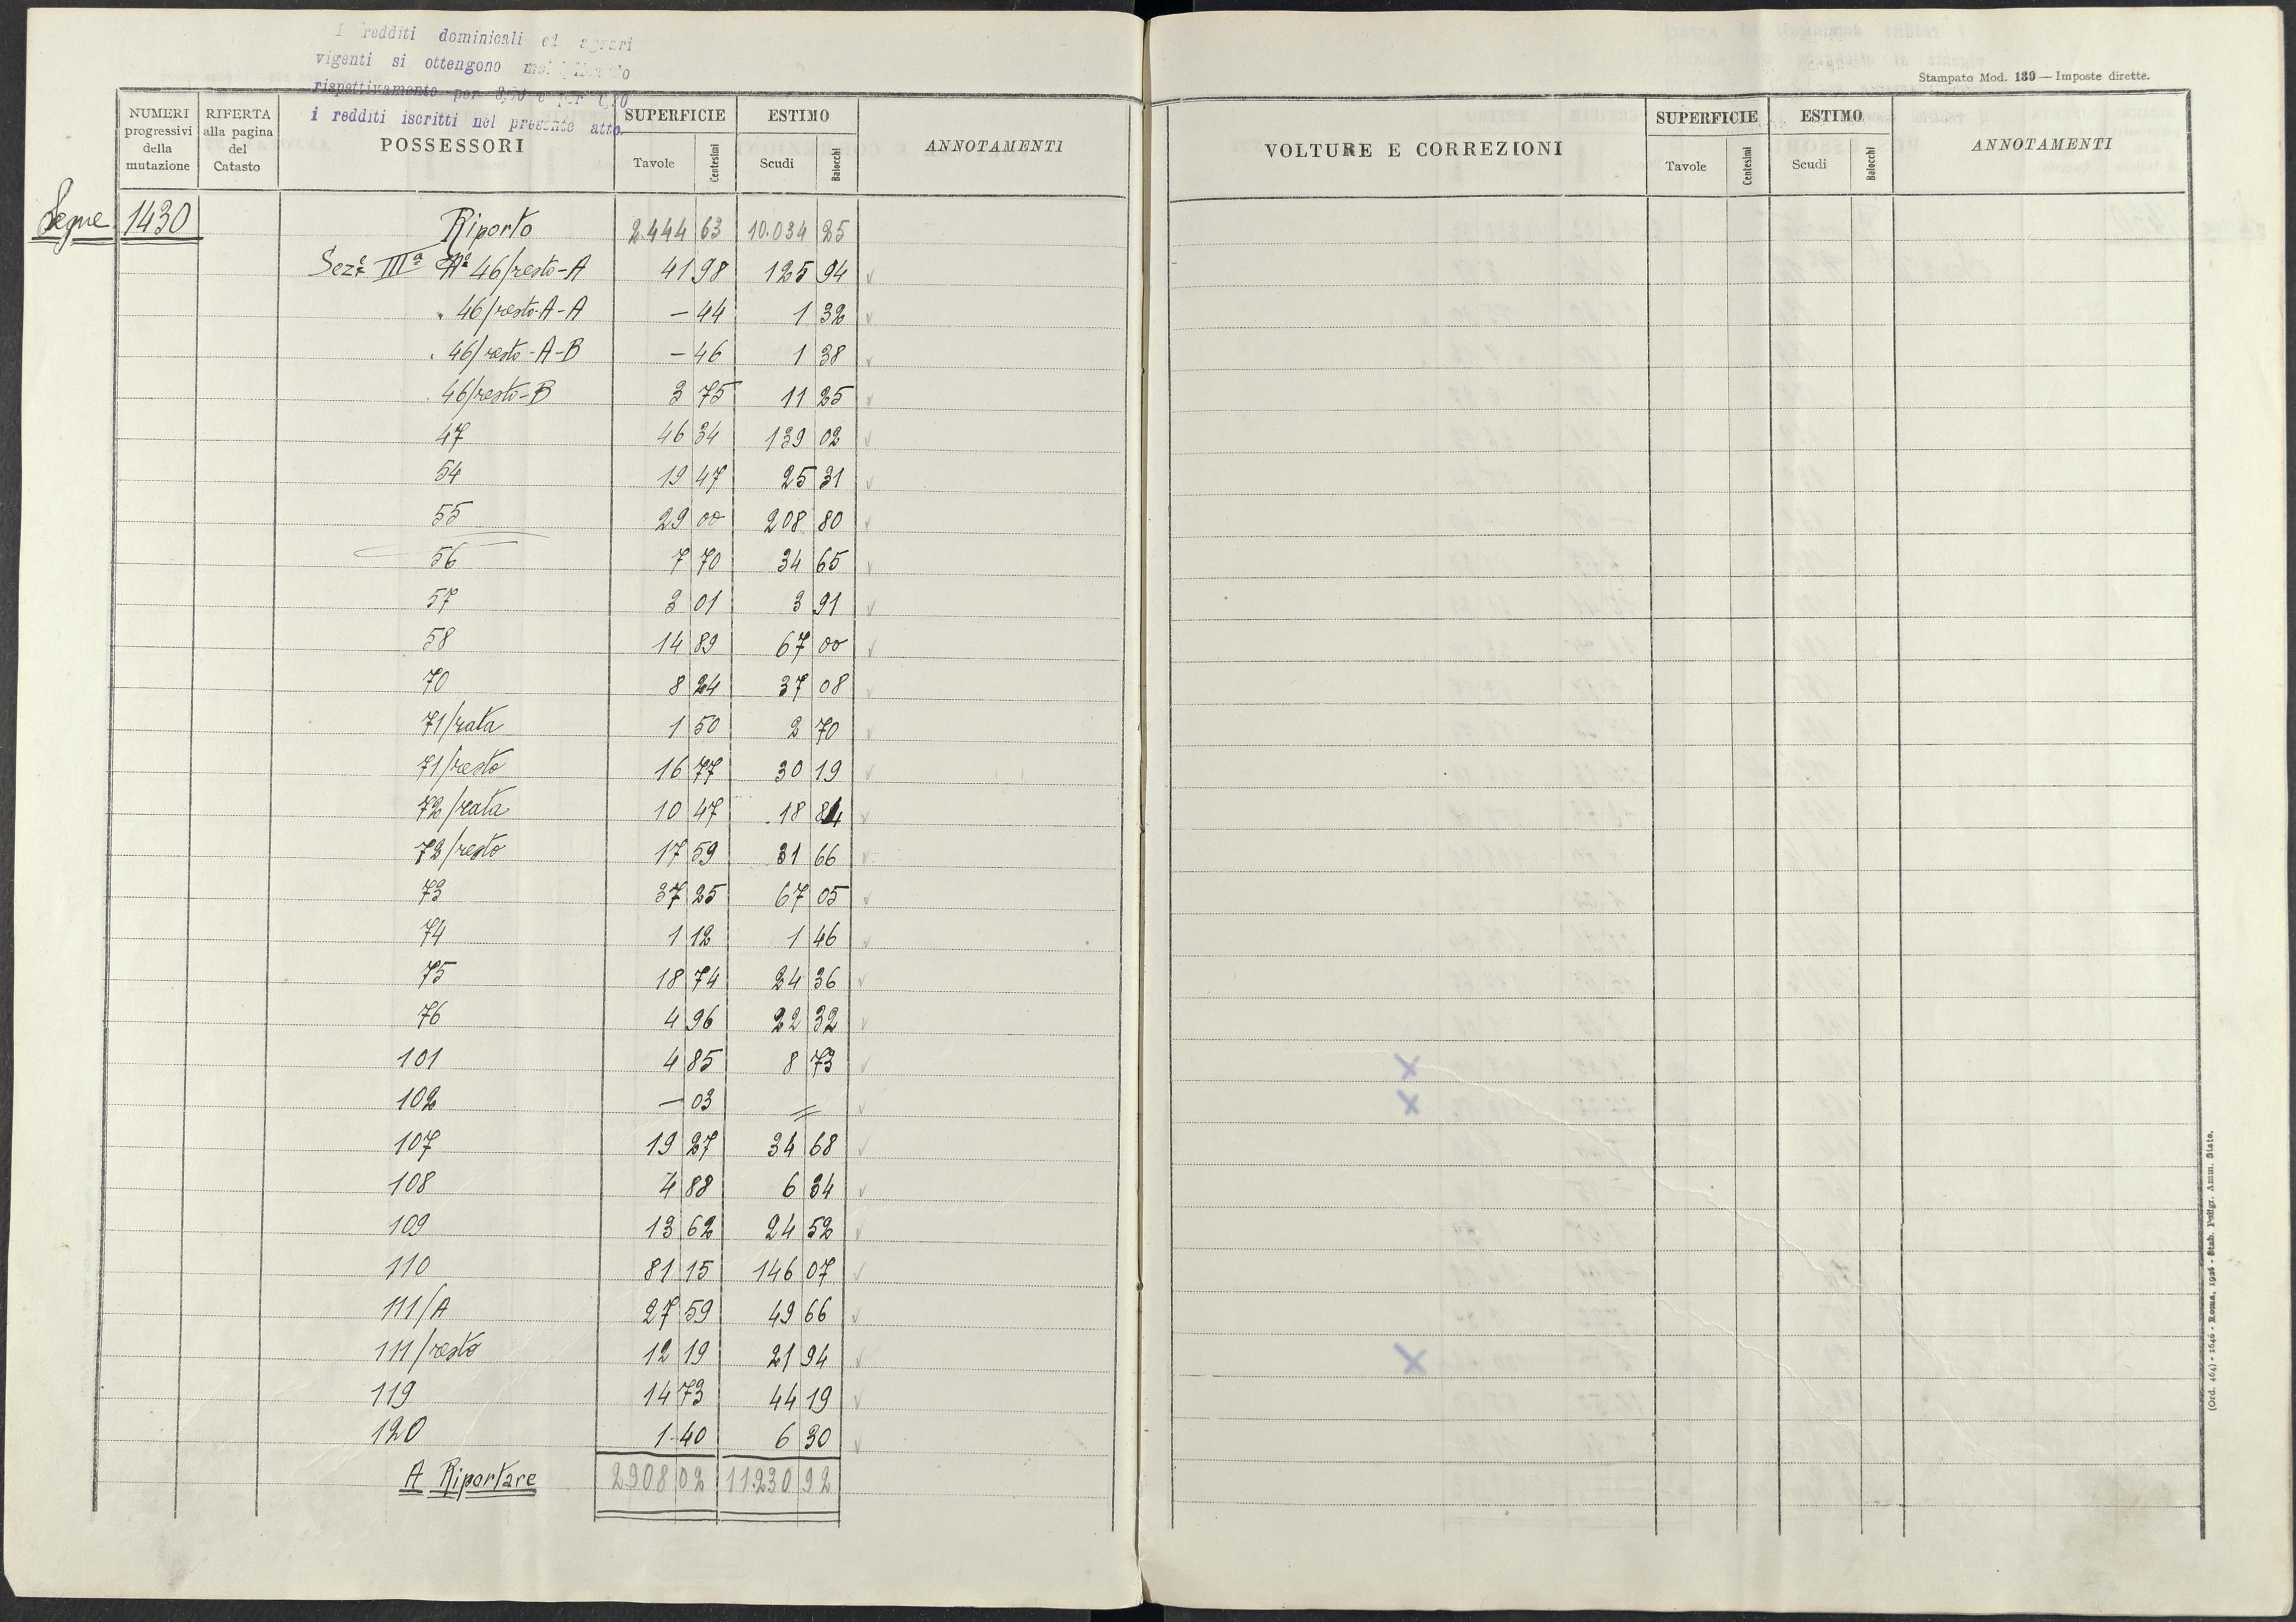 I redditi dominicali ed agrari
vigenti si ottengono
rispettivamente per
i redditi iscritti nel presente atto.
NUMERI progressivi della mutazione | RIFERTA alla pagina del Catasto | POSSESSORI | SUPERFICIE Tavole Centesimi | ESTIMO Scudi Baiocchi | ANNOTAMENTI
Segue 1430 Riporto 2444 63 10.034 25
Sez.e IIIa No 46/resto-A 41 98 125 94 v
" 46/resto-A-A – 44 1 32 v
" 46/resto-A-B – 46 1 38 v
" 46/resto-B 3 75 11 25 v
47 46 34 139 02 v
54 19 47 25 31 v
55 29 00 208 80 v
56 7 70 34 65 v
57 3 01 3 91 v
58 14 89 67 00 v
70 8 24 37 08 v
71/rata 1 50 2 70 v
71/resto 16 77 30 19 v
72/rata 10 47 18 84 v
72/resto 17 59 31 66 v
73 37 25 67 05 v
74 1 12 1 46 v
75 18 74 24 36 v
76 4 96 22 32 v
101 4 85 8 73 v
102 – 03 = v
107 19 27 34 68 v
108 4 88 6 34 v
109 13 62 24 52 v
110 81 15 146 07 v
111/A 27 59 49 66 v
111/resto 12 19 21 94 v
119 14 73 44 19 v
120 1 40 6 30 v
A Riportare 2908 02 11.230 92
Stampato Mod. 139 — Imposte dirette.
VOLTURE E CORREZIONI | SUPERFICIE Tavole Centesimi | ESTIMO Scudi Baiocchi | ANNOTAMENTI
X
X
X
(Ord. 464) - 1646 - Roma, 1926 - Stab. Poligr. Amm. Stato.